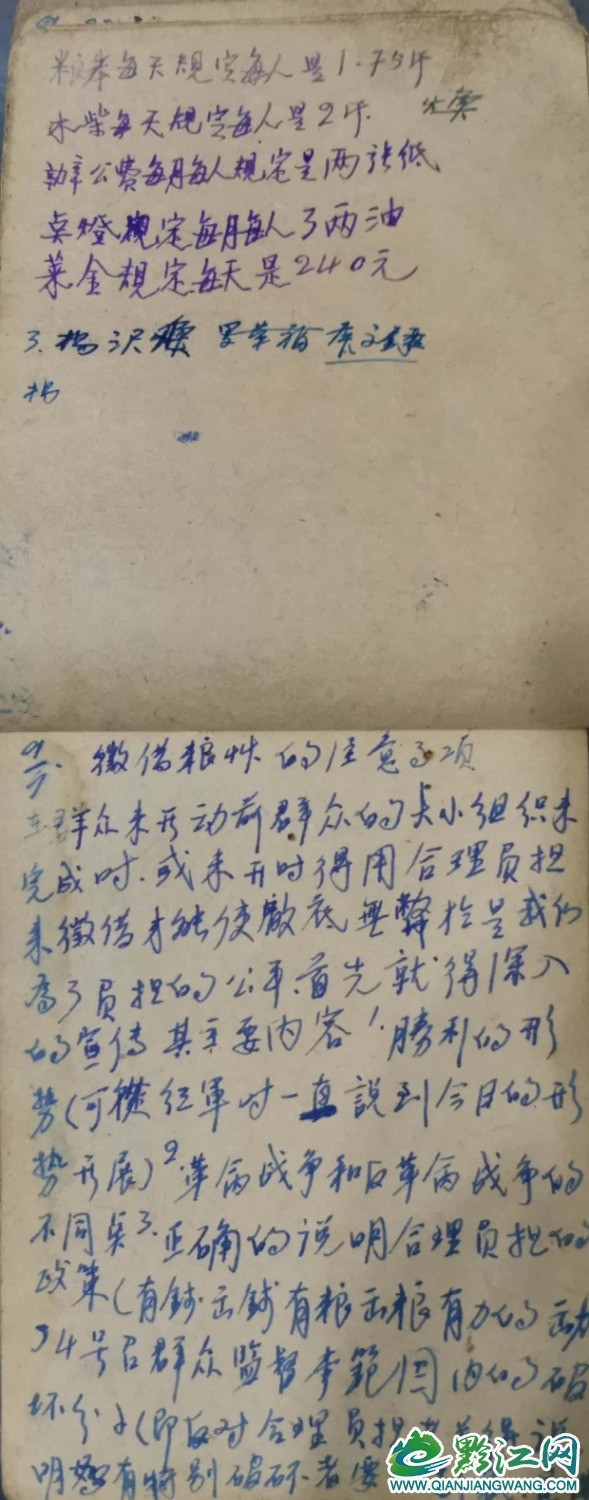 每天规定每人是1.75斤
木柴每天规定每人是2斤
办公费每月每人规定是两张纸
点灯规定每月每人3两油
菜金规定每天是240元
3. 杨沢
杨
徵借粮 的注意事项
群众未 动前群众的大小组织未
完成时. 或未 时得用合理负担
来徵借才能使 底無弊 是我们
為了负担的公平. 首先就得深入
的宣传其主要内容1. 勝利的形
势(可 红軍时一直説到今日的形
势 展)2. 革命战争和反革命战争的
不同点3. 正确的说明合理负担的
政策(有錢出錢有粮出粮有力的出
4号召群众监督 範囲内的破
坏分子(即反对合理负担
明 有特别破坏者要
黔江网
WWW.QIANJIANGWANG.COM